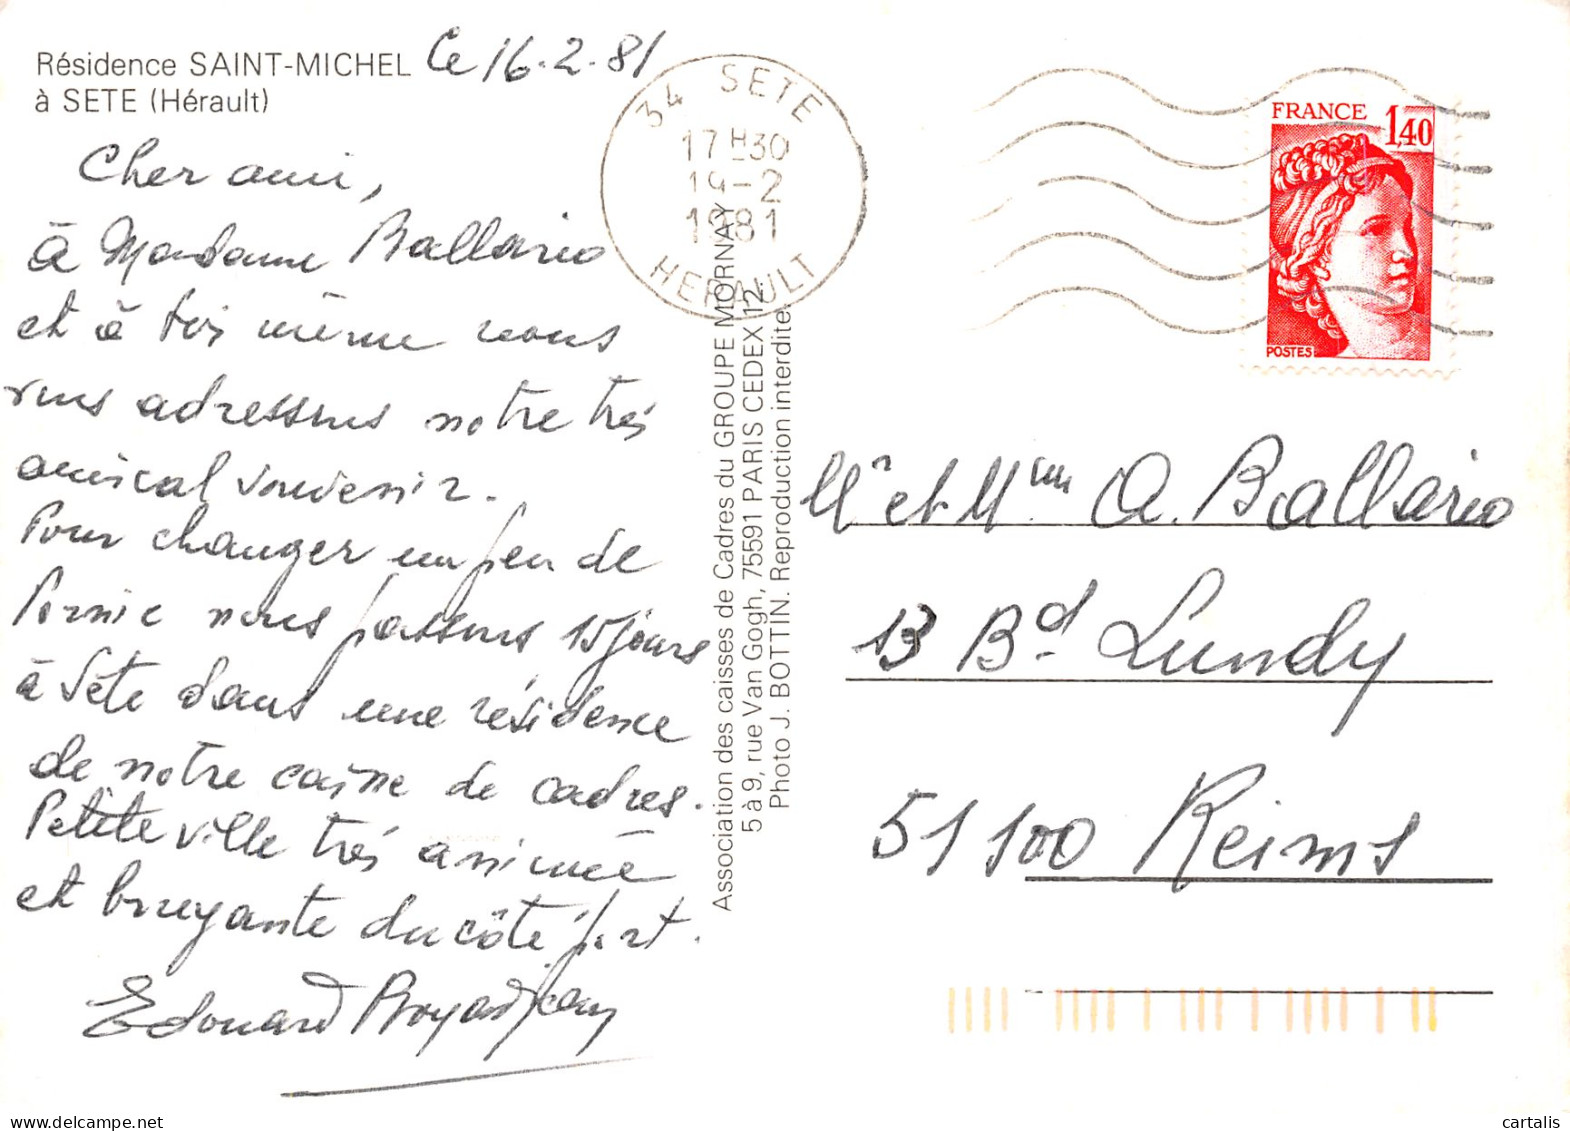 Résidence SAINT-MICHEL
à SETE (Hérault)
Ce 16-2-81
Cher ami,
à Madame Ballario
et à toi même nous
vous adressons notre très
amical souvenir.
Pour changer un peu de
Pornic nous passons 15 jours
à Sète dans une résidence
de notre caisse de cadres.
Petite ville très animée
et bruyante du côté port.
Edouard Boyadjean
34 SETE
17H30
19-2
1981
HERAULT
Association des caisses de Cadres du GROUPE MORNAY
5 à 9, rue Van Gogh, 75591 PARIS CEDEX 12
Photo J. BOTTIN. Reproduction interdite.
FRANCE
1,40
POSTES
Mr et Mme A. Ballario
13 Bd Lundy
51100 Reims
cartalis